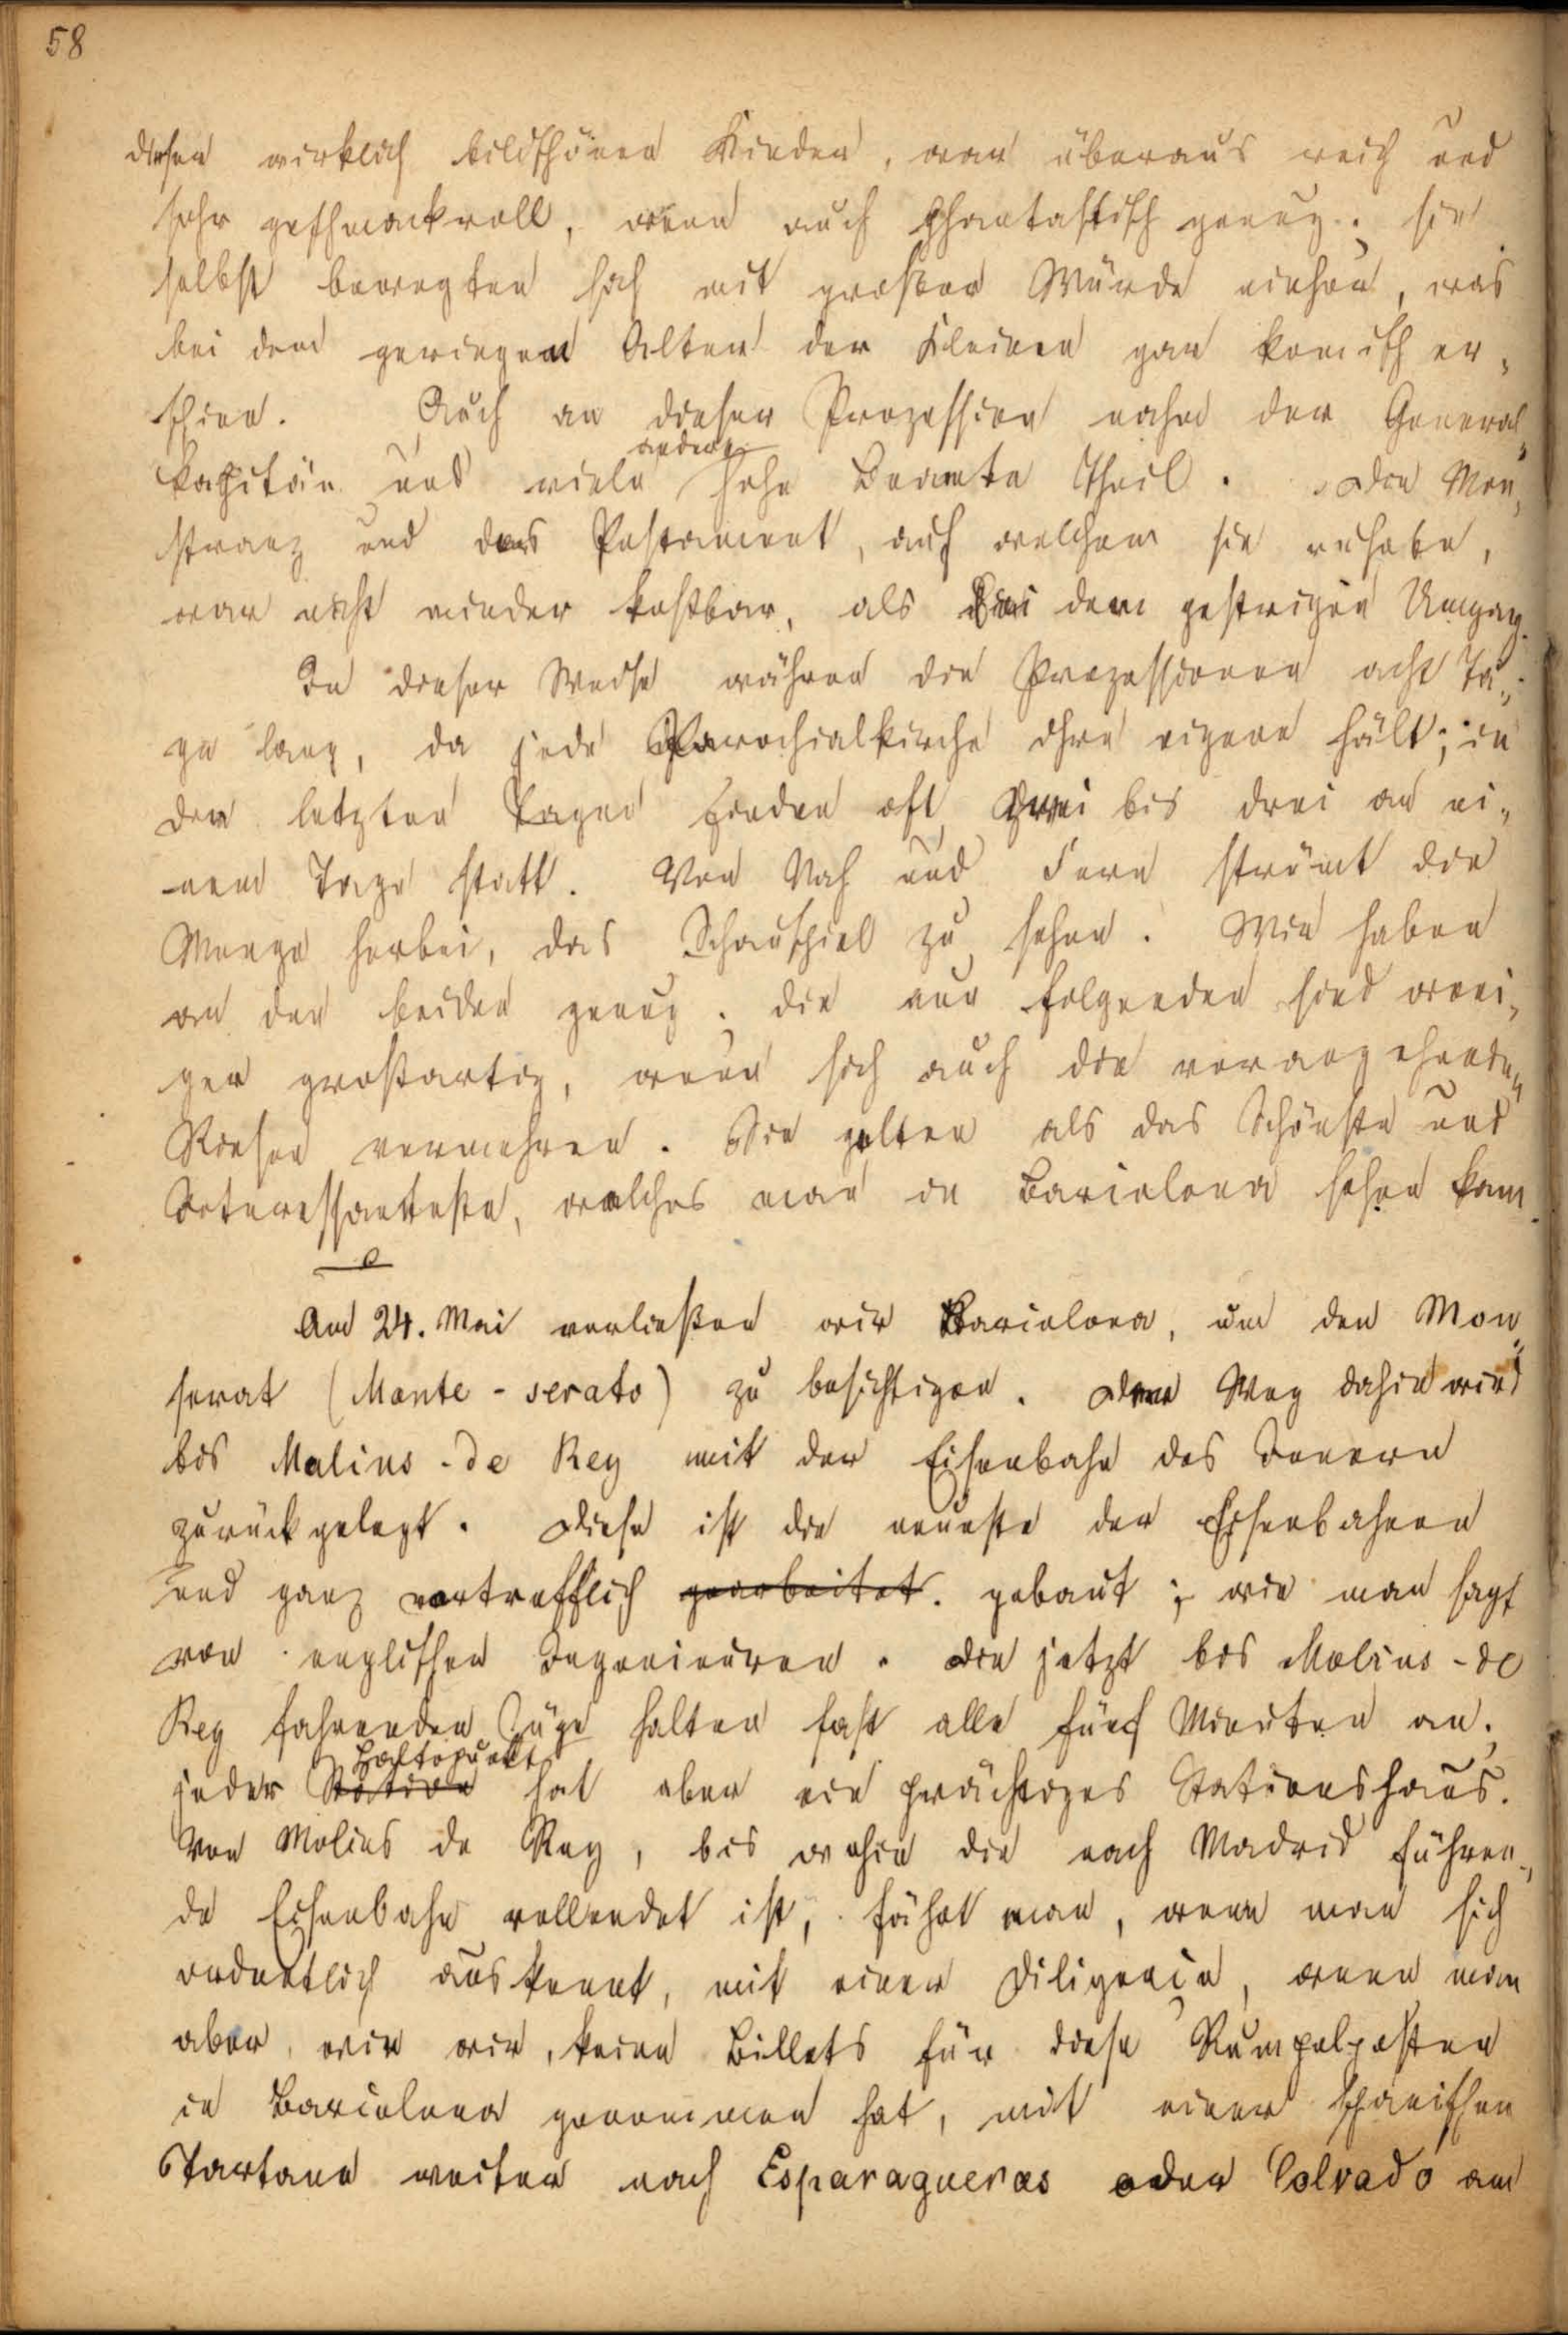 58
dieser wirklich bildschönen Kinder, war überaus reich und
sehr geschmackvoll, wenn auch phantastisch genug; sie
selbst bewegten sich mit großer Würde einher, was
bei dem geringen Alter der Kleinen gar komisch er-
schien. Auch an dieser Prozession nahm der General-
andere
kapitän und viele hohe Beamte Theil. Die Mon-
stranz und das Postament, auf welchem sie ruhete,
war nicht minder kostbar, als bei dem gestrigen Umgang.
In dieser Weise währen die Prozessionen acht Ta-
ge lang, da jede Parochialkirche ihre eigene hält; in
den letzten Tagen finden oft zwei bis drei an ei-
nem Tage statt. Von Nah und Fern strömt die
Menge herbei, das Schauspiel zu sehen. Wir haben
an den beiden genug; die nun folgenden sind weni-
ger großartig, wenn sich auch die vorangehenden
Riesen vermehren. Sie gelten als das Schönste und
Interessanteste, welches man in Barcelona sehen kann.
Am 24. Mai verließen wir Barcelona, um den Mon-
serat (Monte-serato) zu besichtigen. Der Weg dahin wird
bis Malins-de Rey mit der Eisenbahn des Innern
zurückgelegt. Diese ist die neueste der Eisenbahnen
und ganz vortrefflich gearbeitet. gebaut; wie man sagt
von englischen Ingenieuren. Die jetzt bis Molins-de
Rey fahrenden Züge halten fast alle fünf Minuten an;
Haltepunkt
jeder Station hat aber ein prächtiges Stationshaus.
Von Molins de Rey, bis wohin die nach Madrid führen-
de Eisenbahn vollendet ist, fährt man, wenn man sich
ordentlich auskennt, mit einer Diligencia, wenn man
aber, wie wir, keine Billets für diese Rumpelposten
in Barcelona genommen hat, mit einer spanischen
Tartane weiter nach Esparagueras oder Colvado am